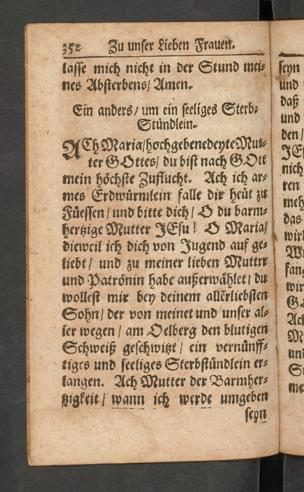 352 Zu unser Lieben Frauen.
lasse mich nicht in der Stund mei-
nes Absterbens/ Amen.
Ein anders/ um ein seeliges Sterb-
Stündlein.
ACh Maria/ hochgebenedeyte Mut-
ter GOttes/ du bist nach GOtt
mein höchste Zuflucht. Ach ich ar-
mes Erdwürmlein falle dir heut zu
Füessen/ und bitte dich/ O du barm-
hertzige Mutter JEsu! O Maria/
dieweil ich dich von Jugend auf ge-
liebt/ und zu meiner lieben Mutter
und Patronin habe außerwählet/ du
wollest mir bey deinem allerliebsten
Sohn/ der von meinet und unser al-
ler wegen/ am Oelberg den blutigen
Schweiß geschwitzt/ ein vernünff-
tiges und seeliges Sterbstündlein er-
langen. Ach Mutter der Barmher-
tzigkeit/ wann ich werde umgeben
seyn
seyn
und
daß
und
den/
JEs
nich
ren
meh
das
wir